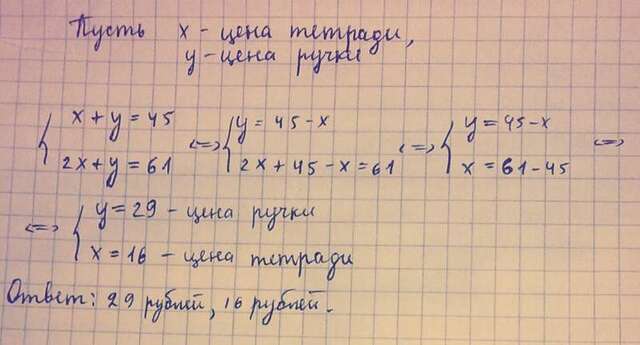 Пусть x - цена тетради,
y - цена ручки
{ x + y = 45 <=> { y = 45 - x <=> { y = 45 - x <=>
{ 2x + y = 61 { 2x + 45 - x = 61 { x = 61 - 45
<=> { y = 29 - цена ручки
{ x = 16 - цена тетради
Ответ: 29 рублей, 16 рублей.